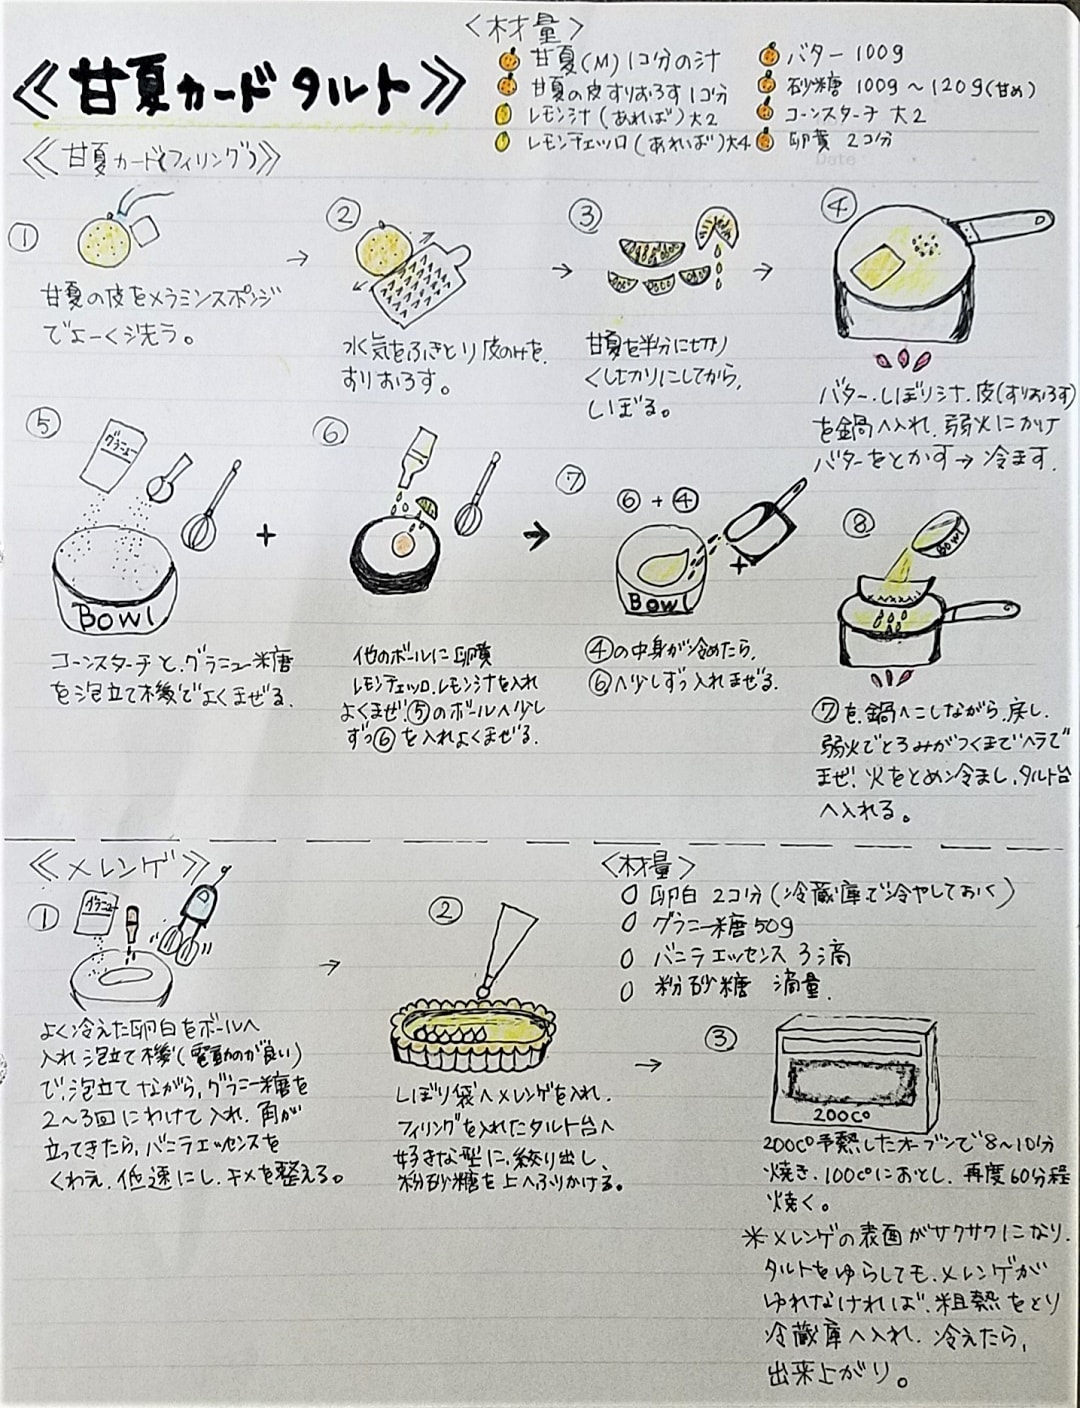 <材量>
≪甘夏カード タルト≫
甘夏(M)1コ分の汁
甘夏の皮すりおろす1コ分
レモン汁(あれば)大2
レモンチェッロ(あれば)大4
バター 100g
砂糖 100g～120g(甘め)
コーンスターチ 大2
卵黄 2コ分
Date
≪甘夏カード(フィリング)≫
①
甘夏の皮をメラミンスポンジ
でよーく洗う。
②
水気をふきとり皮のみを、
すりおろす。
③
甘夏を半分に切り
くし切りにしてから、
しぼる。
④
バター、しぼり汁、皮(すりおろす)
を鍋へ入れ、弱火にかけ
バターをとかす→冷ます。
⑤
グラニュー
Bowl
コーンスターチと、グラニュー糖
を泡立て機でよくまぜる。
+
⑥
他のボールに卵黄
レモンチェッロ、レモン汁を入れ
よくまぜ、⑤のボールへ少し
ずつ⑥を入れよくまぜる。
⑦
⑥+④
+
Bowl
④の中身が冷めたら、
⑥へ少しずつ入れまぜる。
⑧
Bowl
⑦を、鍋へこしながら、戻し、
弱火でとろみがつくまでヘラで
まぜ! 火をとめ冷まし、タルト台
へ入れる。
≪メレンゲ≫
①
グラニュー
よく冷えた卵白をボールへ
入れ泡立て機(電動のが良い)
で、泡立てながら、グラニー糖を
2～3回にわけて入れ、角が
立ってきたら、バニラエッセンスを
くわえ、低速にし、キメを整える。
②
しぼり袋へメレンゲを入れ、
フィリングを入れたタルト台へ
好きな型に、絞り出し、
粉砂糖を上へふりかける。
<材量>
卵白 2コ分(冷蔵庫で冷やしておく)
グラニー糖 50g
バニラエッセンス 3滴
粉砂糖 滴量
③
200C°
200C°予熱したオーブンで8～10分
焼き、100C°におとし、再度60分程
焼く。
※メレンゲの表面がサクサクになり、
タルトをゆらしても、メレンゲが
ゆれなければ、粗熱をとり
冷蔵庫へ入れ、冷えたら、
出来上がり。